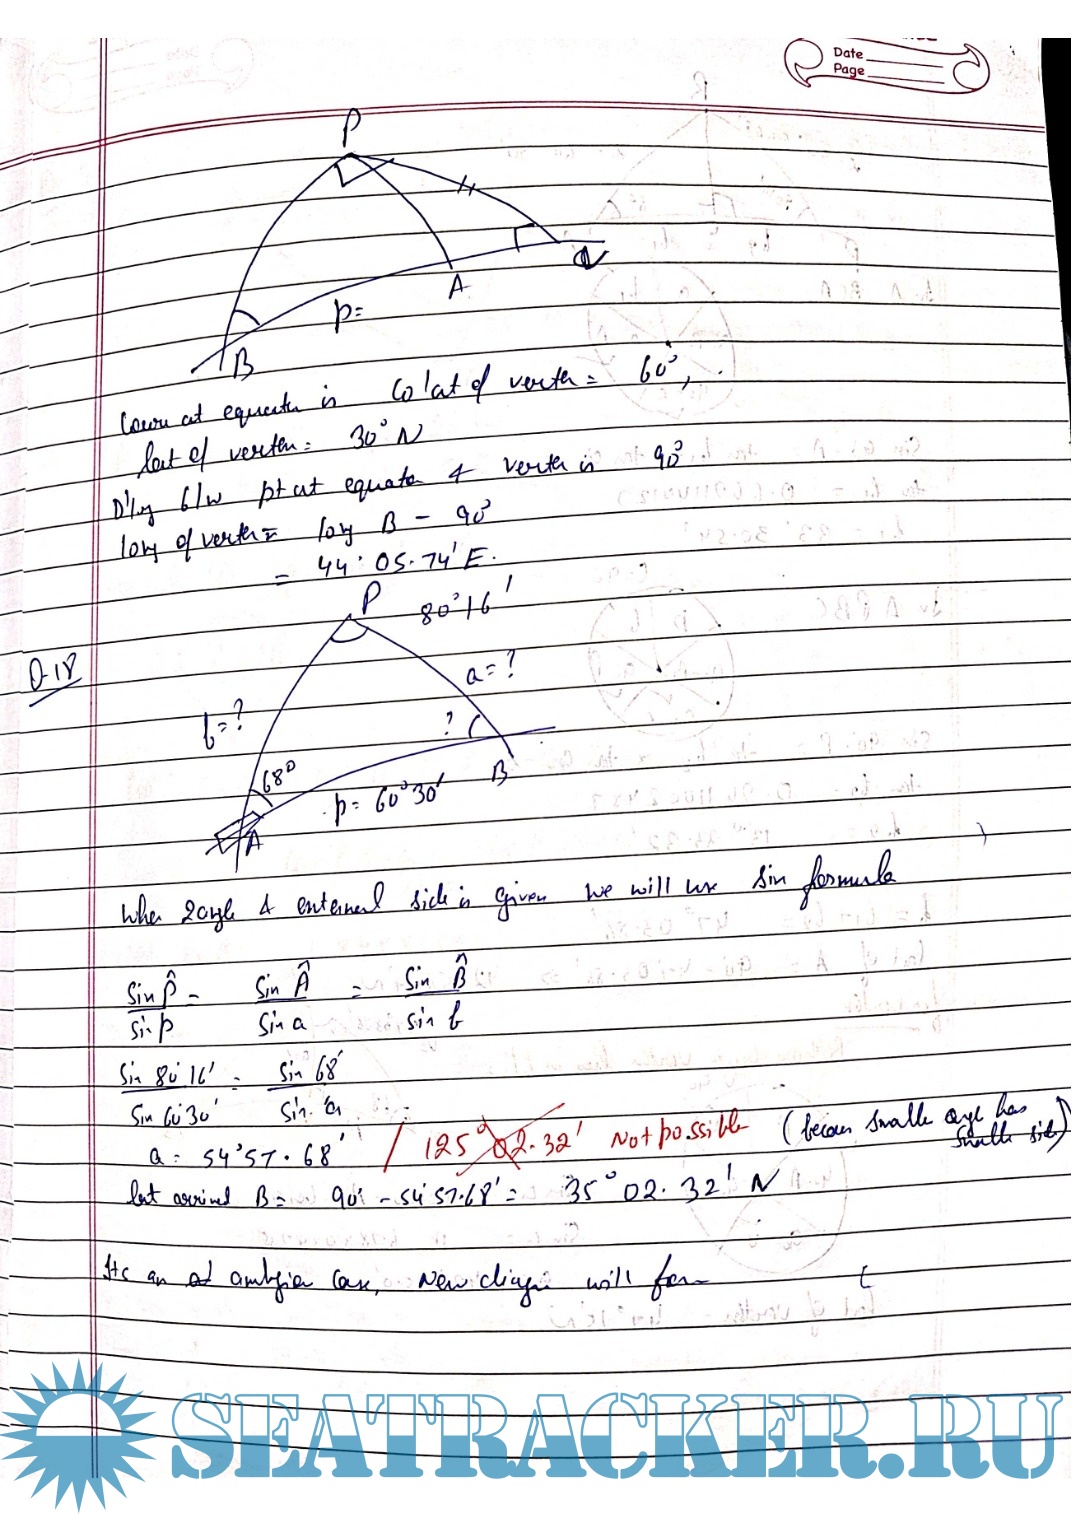 Date
Page
P
A
V
p=
B
Course at equator is Co'lat of vertex = 60°,
lat of vertex = 30° N
D'long b/w pt at equator & vertex is 90°
long of vertex = long B - 90°
= 44° 05.74' E.
P
80°16'
Q-18
a=?
b=?
?
68°
B
p= 60°30'
A
When 2 angle & external side is given we will use Sin formula
Sin P̂ = Sin Â = Sin B̂
Sin p Sin a Sin b
Sin 80°16' = Sin 68°
Sin 60°30' Sin a
a = 54°57.68' / 125°02.32' Not possible (because smaller angle has smaller side)
lat arrived B = 90° - 54°57.68' = 35° 02.32' N
Its an case, New will form
SEATRACKER.RU